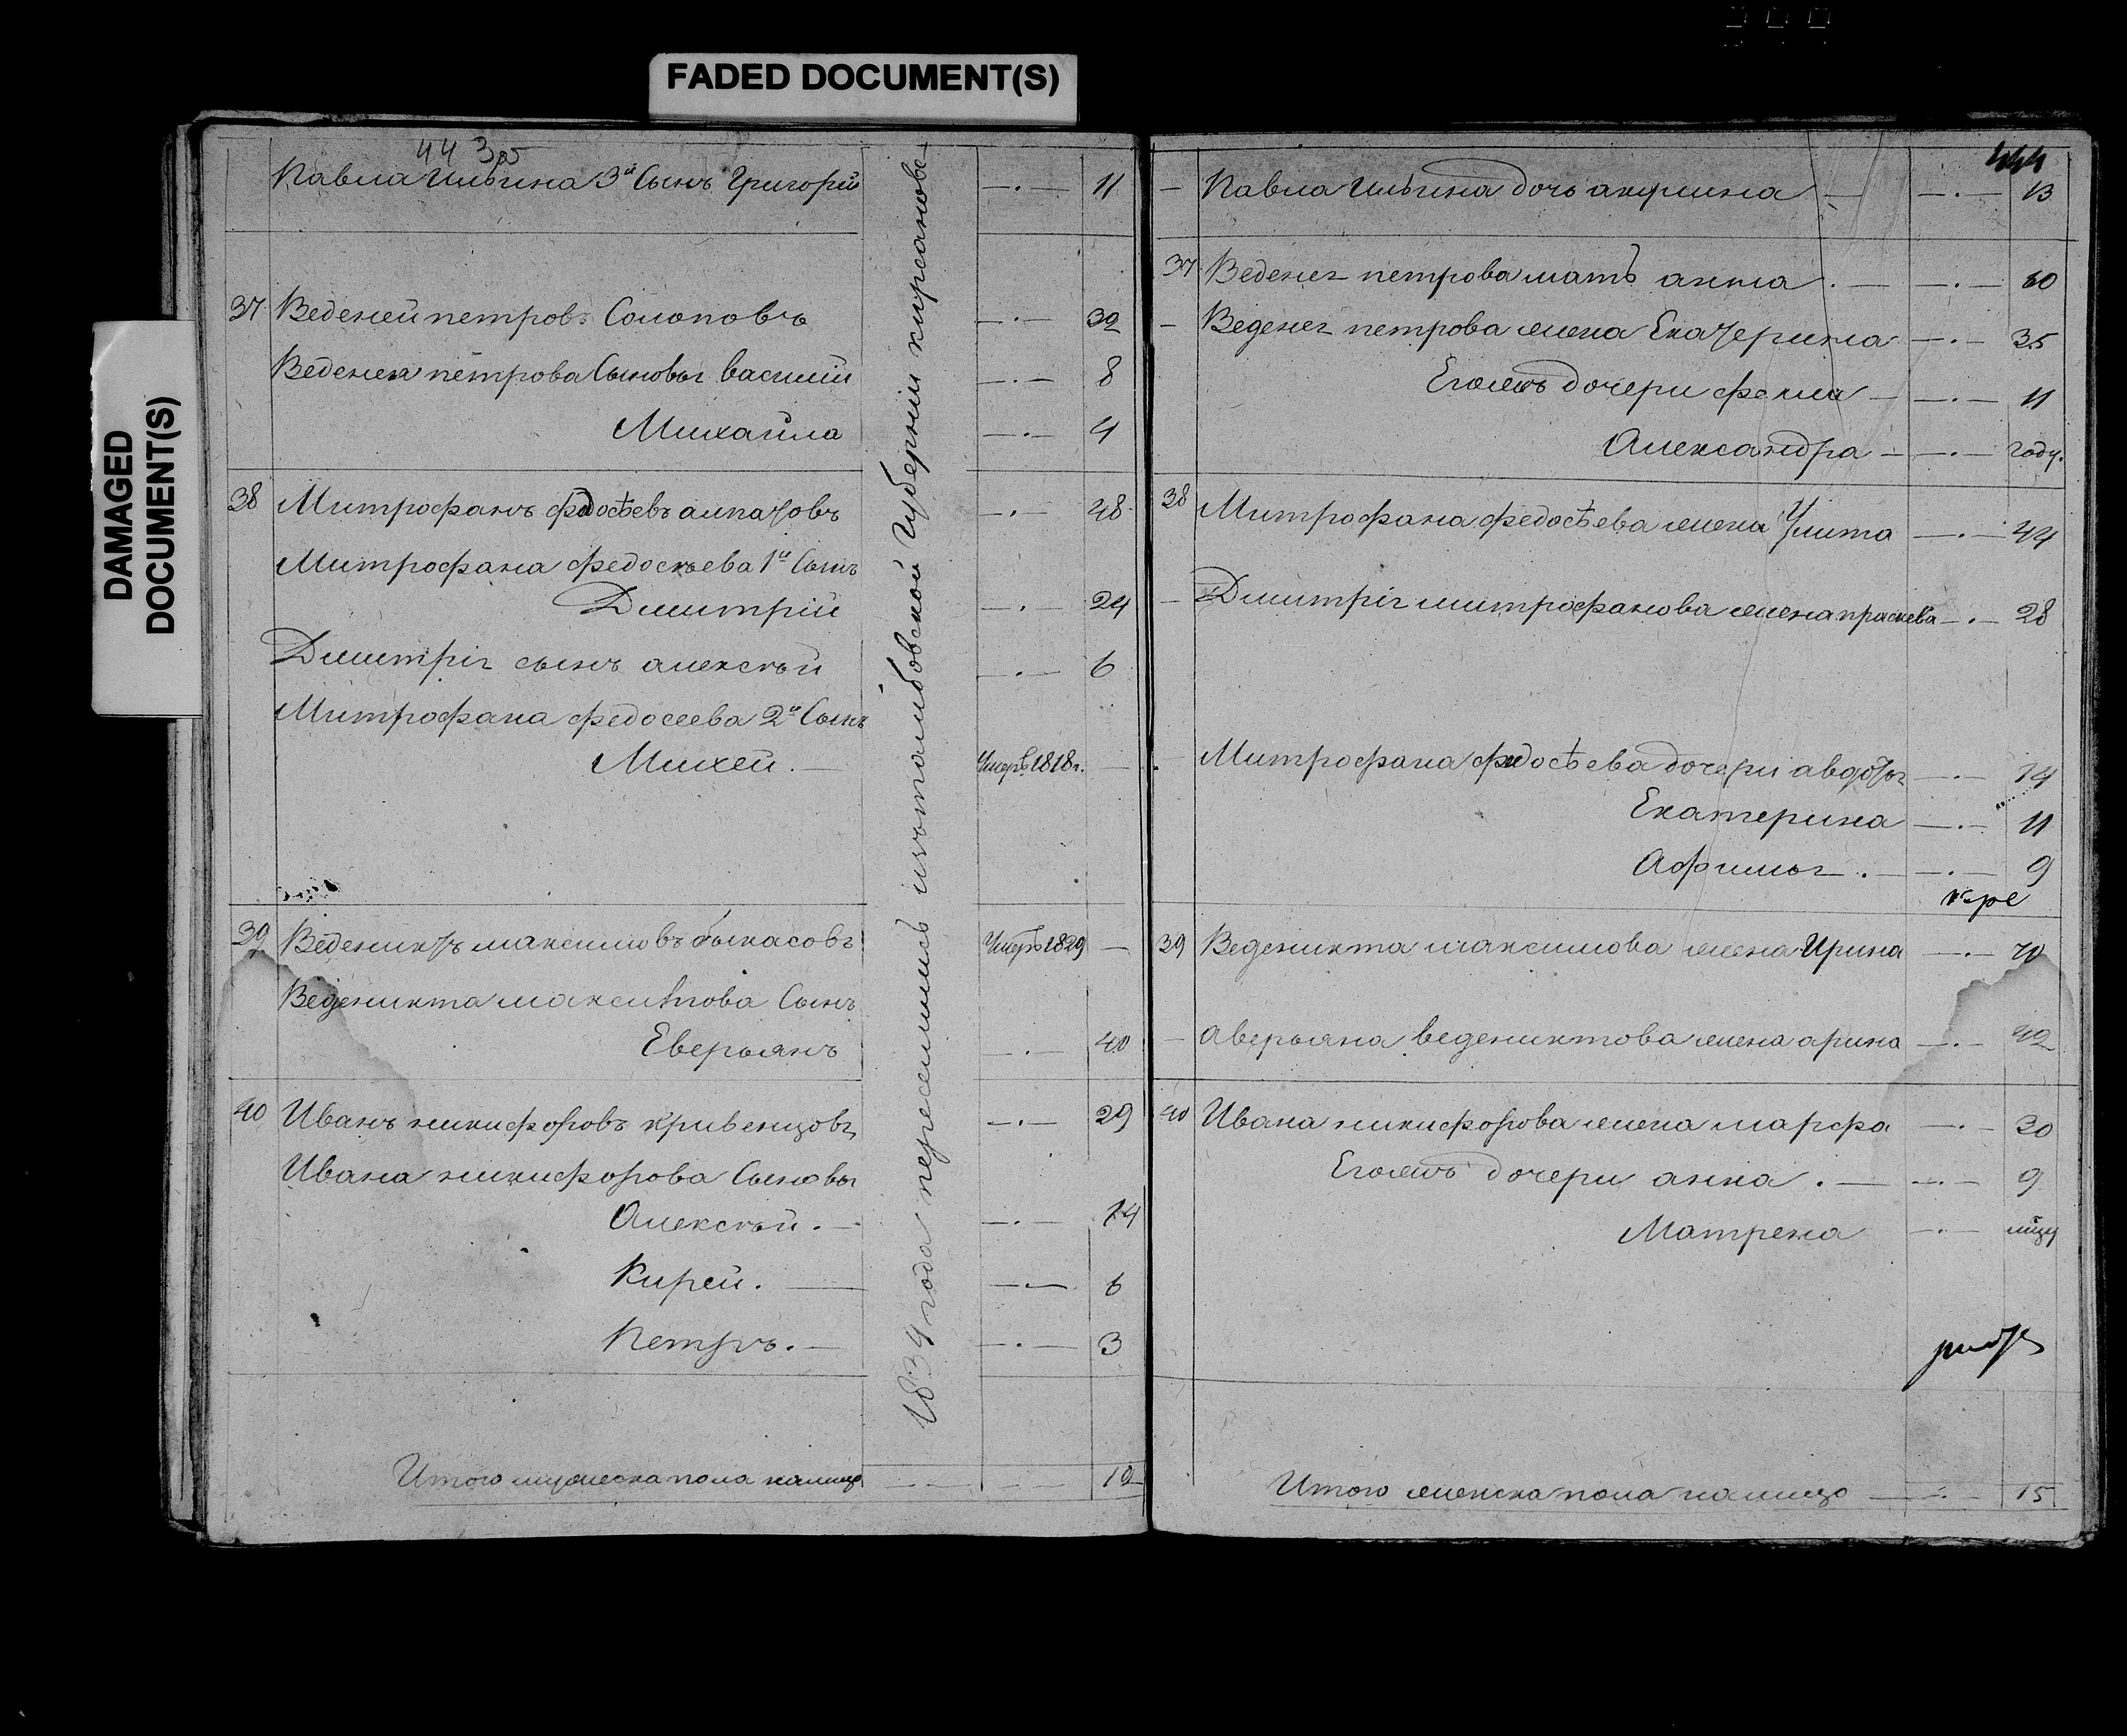 FADED DOCUMENT(S)
DAMAGED
DOCUMENT(S)
44
Павла Ильина 3й Сынъ Григорій —·— 11
37 Веденей петровъ Солоповъ —·— 32
Веденея петрова Сыновья василій —·— 8
Михайла —·— 4
38 Митрофанъ федосѣевъ алпатовъ —·— 48
Митрофана федосѣева 1й Сынъ
Димитрій —·— 24
Димитрія сынъ алексѣй —·— 6
Митрофана федосеева 2й Сынъ
Михей. — Умеръ 1818г. —
39 Ведениктъ максимовъ быкасовъ Умеръ 1829 —
Веденикта максимова Сынъ
Еверьянъ —·— 40
40 Иванъ никифоровъ кривенцовъ —·— 29
Ивана никифорова Сыновья
Алексѣй. — —·— 14
Кирей. — —·— 6
Петръ. — —·— 3
Итого мужеска пола налицо 12
1834 года переселились изъ тамбовской Губерніи кирсановс
— Павла Ильина дочь акулина — —·— 13
37 Веденея петрова мать анна. — —·— 60
— Веденея петрова жена Екатерина —·— 35
Егожъ дочери фекла — —·— 11
Александра — —·— году.
38 Митрофана федосѣева жена Улита —·— 44
— Димитрія митрофанова жена прасковья —·— 28
Митрофана федосѣева дочери авдотья —·— 14
Екатерина —·— 11
Афимья. — —·— 9
39 Веденикта максимова жена Ирина —·— 70
— Аверьяна веденихтова жена арина —·— 42
40 Ивана никифорова жена марфа —·— 30
Егожъ дочери анна. — —·— 9
Матрена —·— мцу
Итого женска пола налицо — 15